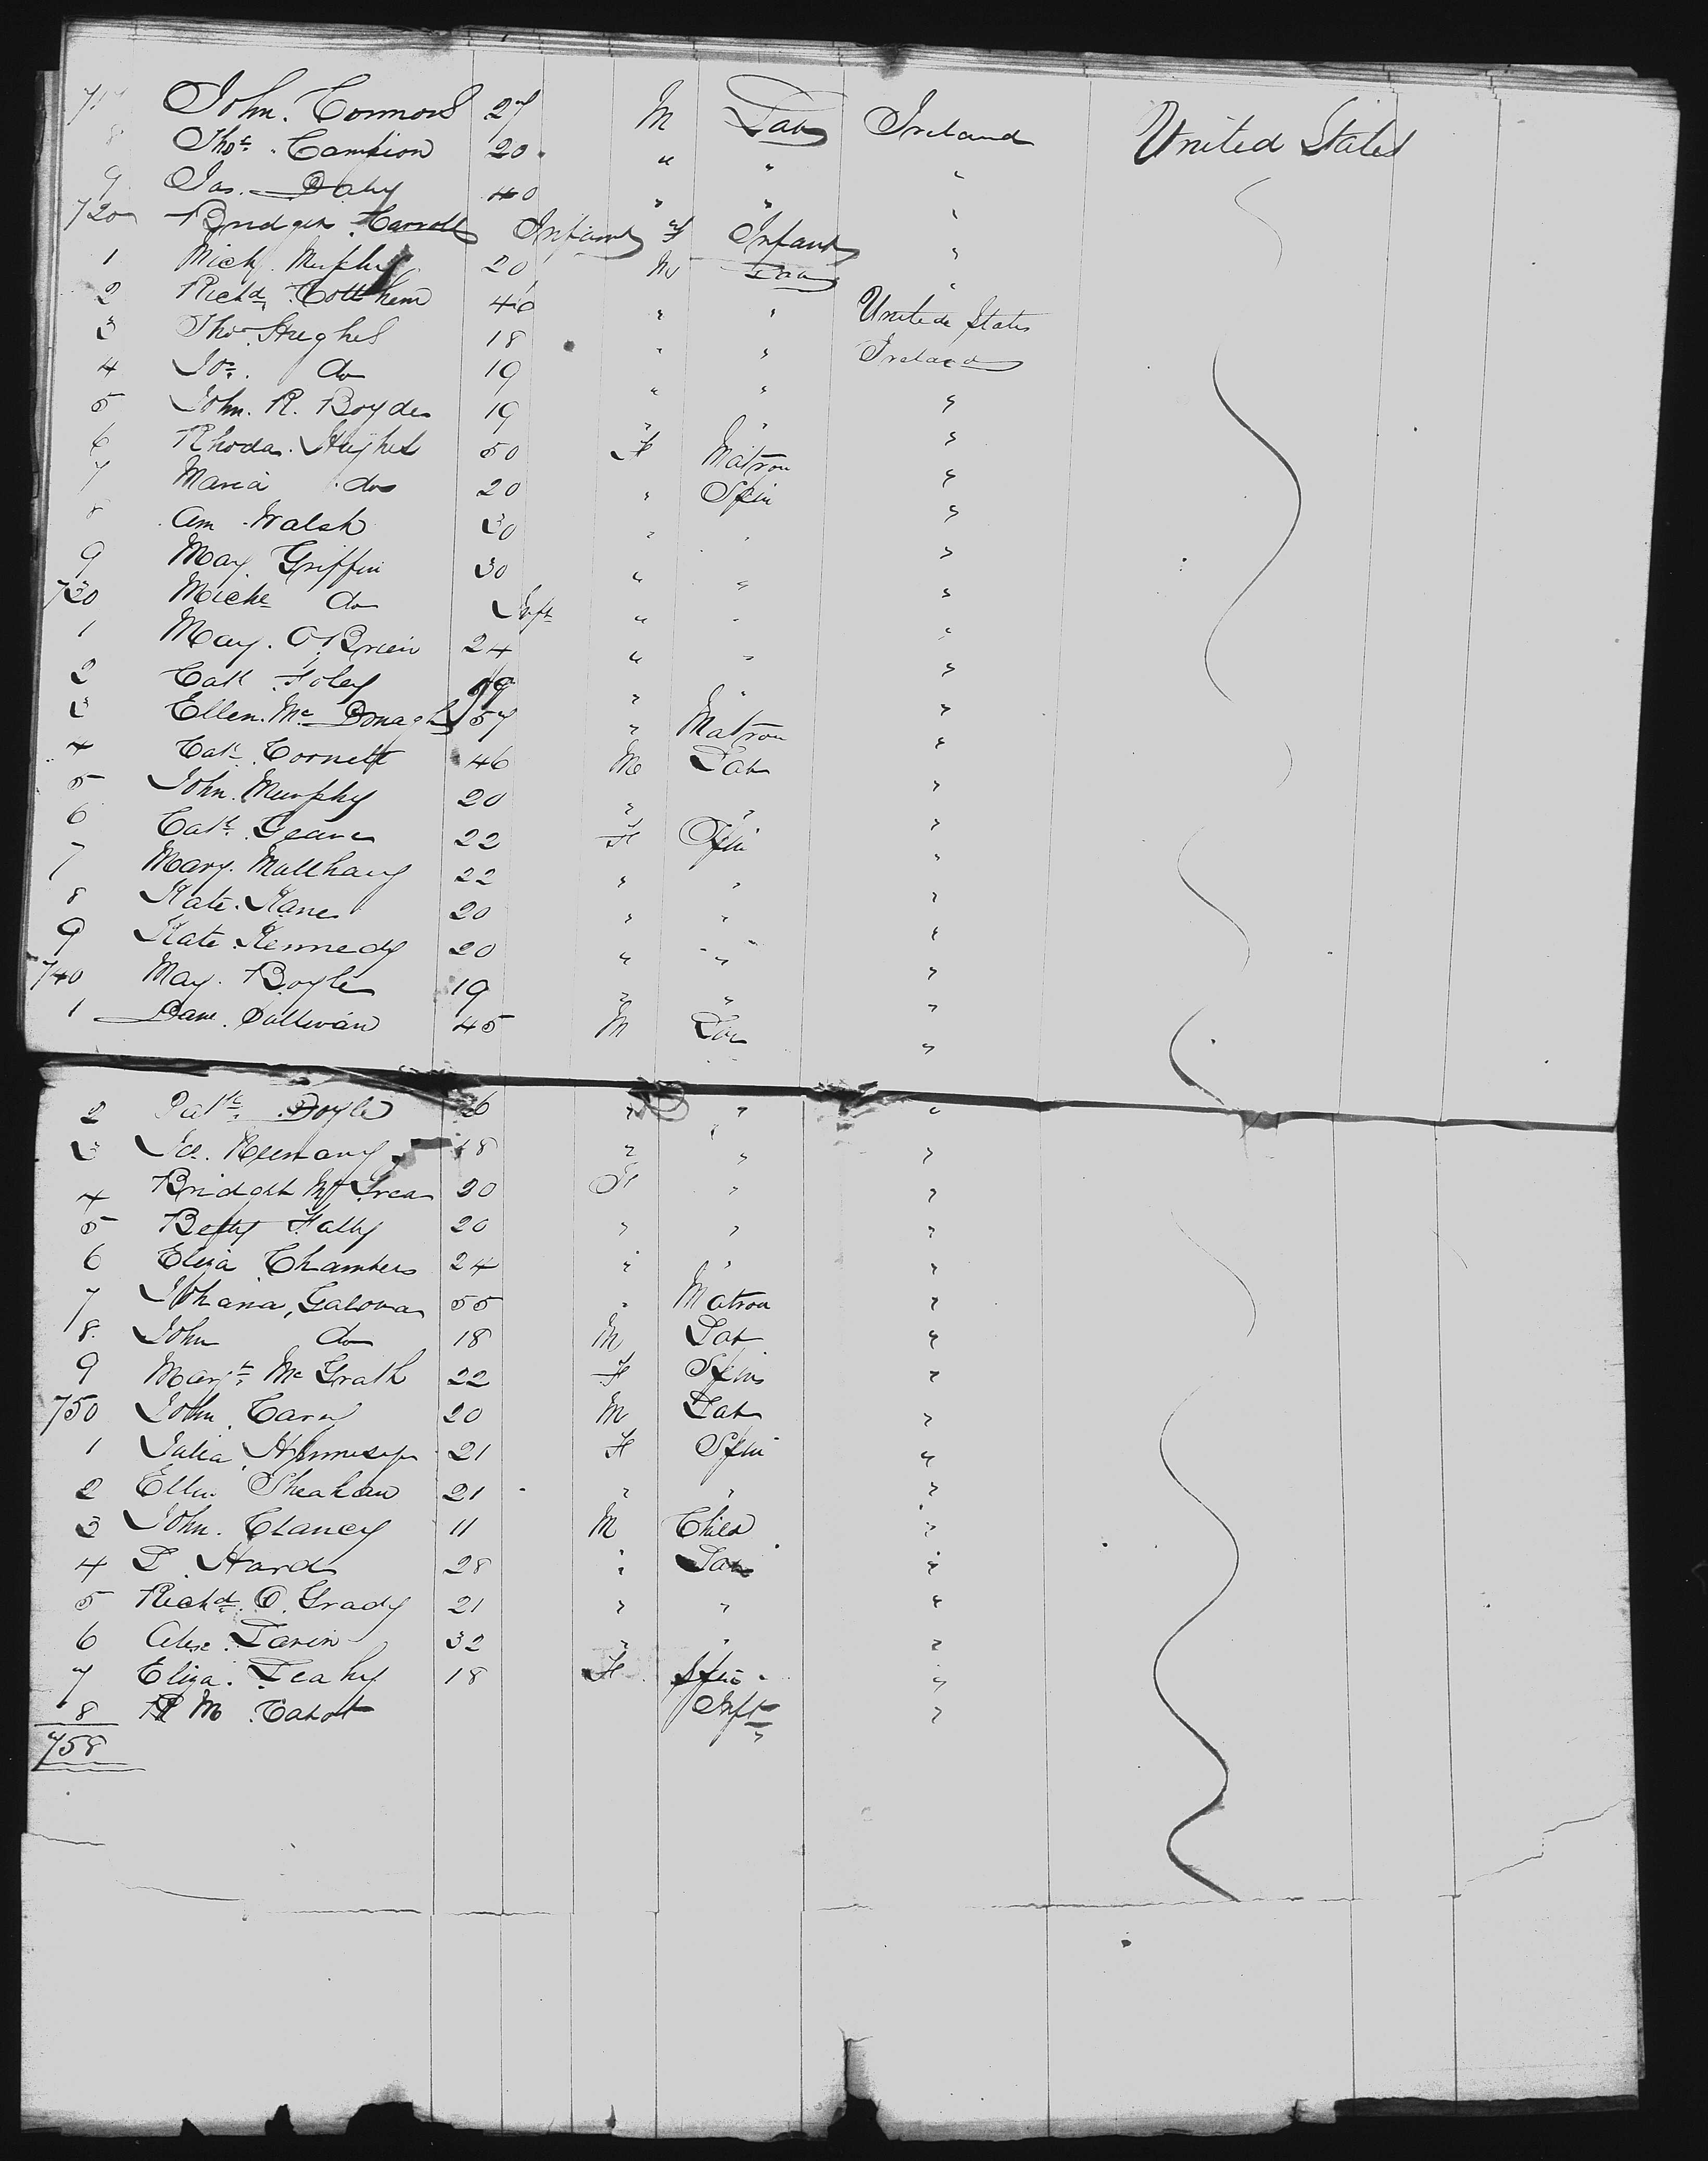 717 John. Connors 27 M Lab Ireland United States
8 Thos. Campion 20 " " "
9 Jas. Daly 40 " " "
720 Bridget Carroll Infant F Infant "
1 Mich. Murphy 20 M Lab "
2 Richd. 46 " " United States
3 Thos Hughes 18 " " Ireland
4 Jos. do 19 " " "
5 John. R. Boyde 19 " " "
6 Rhoda. Hughes 50 F Matron "
7 Maria do 20 " Spin "
8 Ann Walsh 30 " " "
9 May Griffin 30 " " "
730 Michl do Inft " " "
1 May. O'Brien 24 " " "
2 Cath Foley " " "
3 Ellen. Mc Donagh 57 " Matron "
4 Cath. Cornett 46 M Lab "
5 John. Murphy 20 " " "
6 Cath. 22 F Spin "
7 Mary. Mullhany 22 " " "
8 Kate. Kane 20 " " "
9 Kate. Kennedy 20 " " "
740 May. Boyle 19 " " "
1 Danl. Sullivan 45 M Lab "
2 Patk. Doyle 26 " " "
3 18 " " "
4 Bridget 20 F " "
5 Betty Fally 20 " " "
6 Eliza Chambers 24 " " "
7 Johana, 55 " Matron "
8 John do 18 M Lab "
9 Margt. Mc Grath 22 F Spin "
750 John. 20 M Lab "
1 Julia Hennesy 21 F Spin "
2 Ellen Sheahan 21 " " "
3 John. Clancy 11 M Child "
4 28 " Lab "
5 Richd. O. Grady 21 " " "
6 Alex. 32 " " "
7 Eliza. Leahy 18 F Spin "
8 R M Cabot Inft "
758